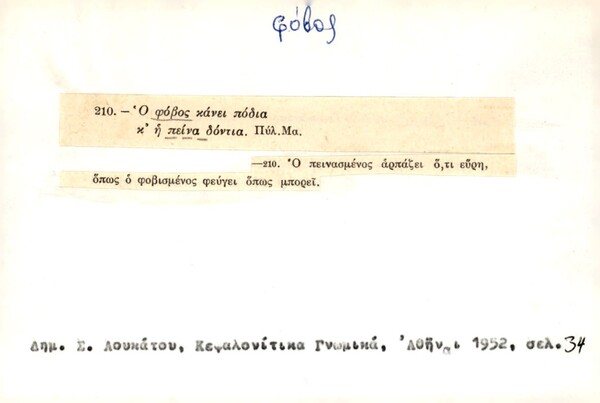 φόβος
210. – Ὁ φόβος κάνει πόδια
κ' ἡ πείνα δόντια. Πύλ.Μα.
—210. Ὁ πεινασμένος ἁρπάζει ὅ,τι εὕρη,
ὅπως ὁ φοβισμένος φεύγει ὅπως μπορεῖ.
Δημ. Σ. Λουκάτου, Κεφαλονίτικα Γνωμικά, Ἀθῆναι 1952, σελ. 34